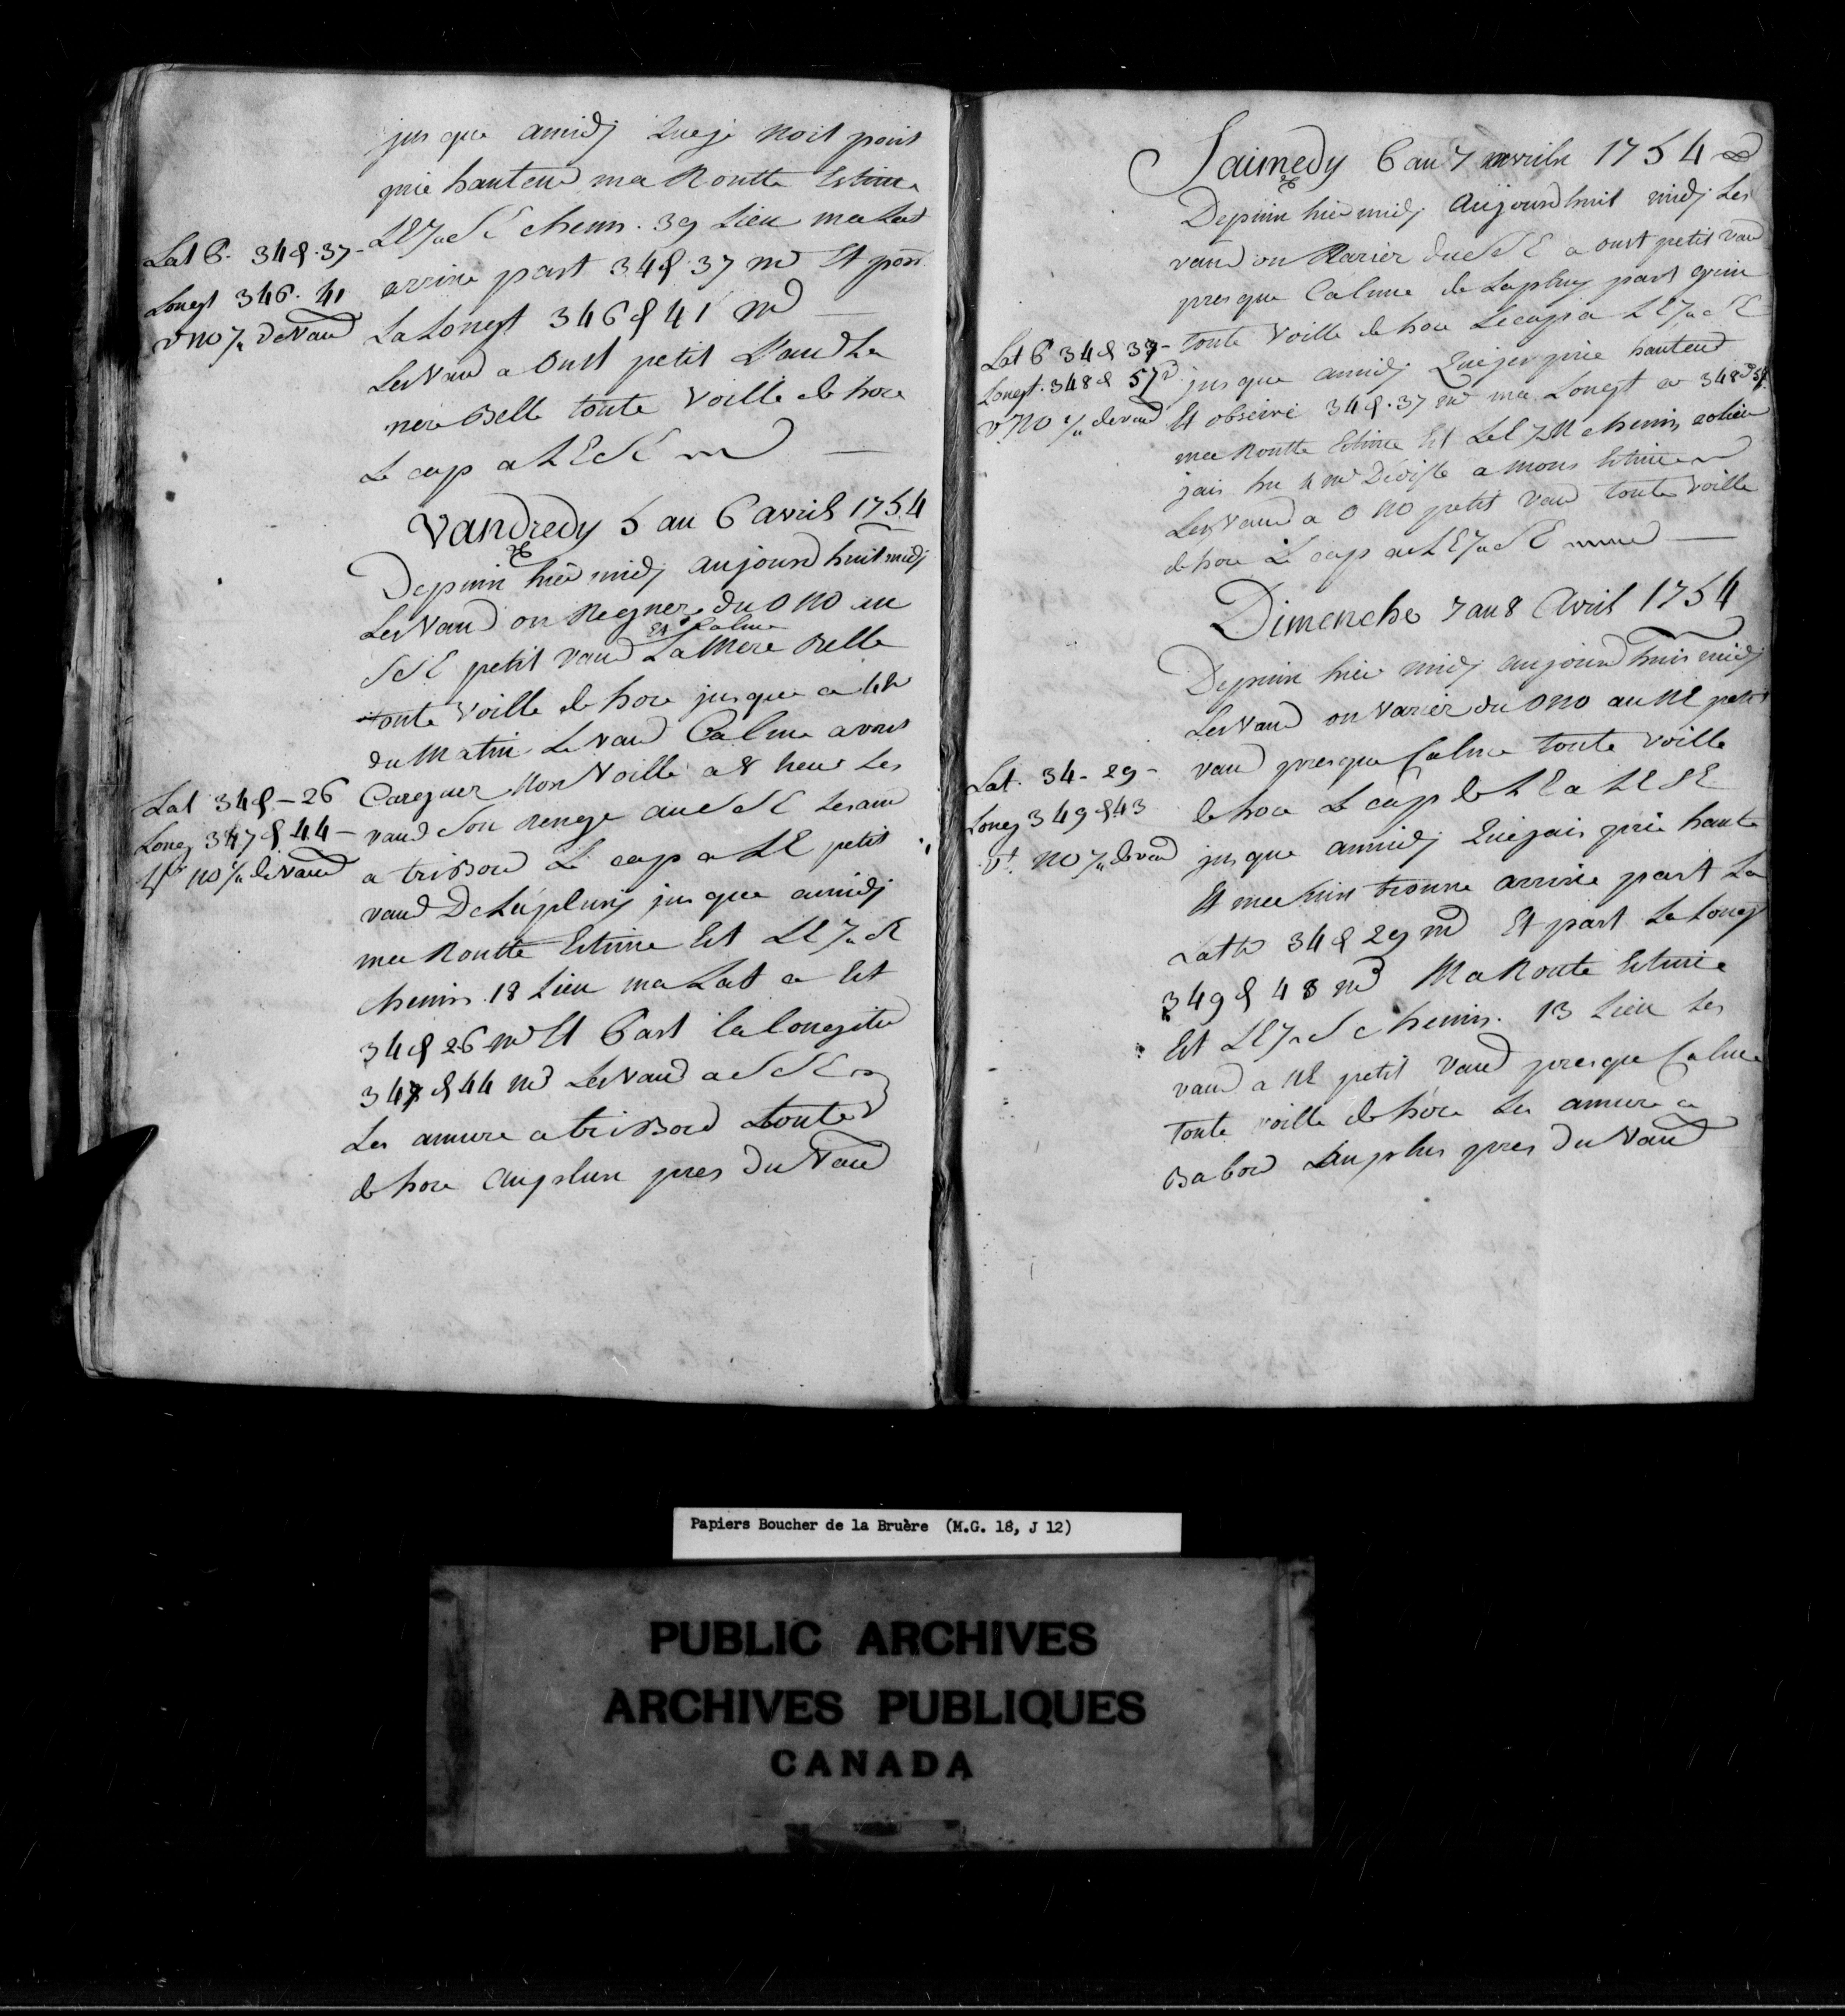 jus que amidj que je noit point
prie hauteur ma Routte Estime
LE 1/4 SE chemin. 39 Lieu ma Lat
arrive part 34d 37 m Et par
La Longt 346d 41 m
Les Vand a Oust petit Vand La
mere Belle toute Voille de hore
Le cap a LESE
Lat 6. 34d.37-
Longt 346. 41
v no 1/4 de Vand
Vandredy 5 au 6 avril 1754
Depuin hier midj aujourd huit midj
Les Vand on Regner du O NO au
SSE petit vand Et Calme La Mere Belle
toute Voille de hore jusque a 4h
du Matin Le Vand Calme avons
Careguer Nos Voille a 8 heur Les
vand son Renge au SSE Les amu
a tribord Le cap a LE petit
vand De La pluy jus que amidj
ma Routte Estime Est LE 1/4 SE
chemin. 18 Lieu ma Lat a Est
34d 26 m Et Part la longitu
347d 44 m Les Vand a SSE
Les amure a tribord toute
de hore au plus pres Du Vand
Lat 34d-26
Long 347d 44-
no 1/4 de Vand
Saimedy 6 au 7 avrile 1754
Depuin hier midj Aujourd huit midj Les
vand on Varier du SSE a oust petit vand
presque Calme de La pluy part grin
toute Voille de hore Le cap a LE 1/4 SE
jus que amidj que jer prie hauteur
Et observe 34d.37 m ma Longt a 348d 57
ma Routte Estime Est LE 1/4 NE chemin, 20 lieu
jais hu 4 m De diffe a mons Estime
Les Vand a O NO petit Vand toute Voille
de hore Le cap a LE 1/4 SE
Lat 6 34d 37-
Longt. 348d 57
v. NO 1/4 de vand
Dimenche 7 au 8 Avril 1754
Depuin hier midj aujourd huit midj
Les Vand on Varier du O NO au NE petit
vand presque Calme toute Voille
de hore Le cap de LE a LESE
jus que amidj que jais prie haute
Et me suis trouve arrive part La
Latt 34d 29 m Et part La Long
349d 43 m Ma Route Estime
Est LE 1/4 S chemin. 13 Lieu Les
vand a NE petit Vand presque Calme
toute voille de hore Les amure a
Babord au plus pres Du Vand
Lat. 34-29-
Long 349d43
vt. NO 1/4 de vand
Papiers Boucher de la Bruère (M.G. 18, J 12)
PUBLIC ARCHIVES
ARCHIVES PUBLIQUES
CANADA